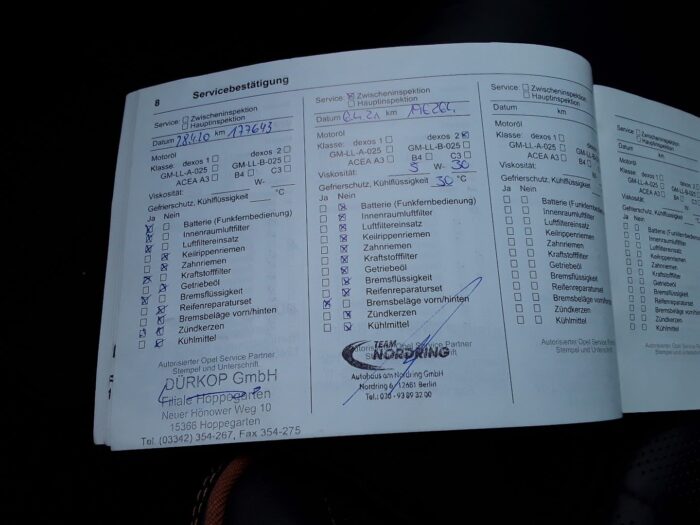 8 Servicebestätigung
Service: Zwischeninspektion
Hauptinspektion
Datum 28.4.20 km 177643
Motoröl
Klasse: dexos 1 dexos 2
GM-LL-A-025 GM-LL-B-025
ACEA A3 B4 C3
Viskosität: W-
Gefrierschutz, Kühlflüssigkeit °C
Ja Nein
Batterie (Funkfernbedienung)
Innenraumluftfilter
Luftfiltereinsatz
Keilrippenriemen
Zahnriemen
Kraftstofffilter
Getriebeöl
Bremsflüssigkeit
Reifenreparaturset
Bremsbeläge vorn/hinten
Zündkerzen
Kühlmittel
Autorisierter Opel Service Partner
Stempel und Unterschrift
DÜRKOP GmbH
Filiale Hoppegarten
Neuer Hönower Weg 10
15366 Hoppegarten
Tel. (03342) 354-267, Fax 354-275
Service: Zwischeninspektion
Hauptinspektion
Datum km
Motoröl
Klasse: dexos 1 dexos 2
GM-LL-A-025 GM-LL-B-025
ACEA A3 B4 C3
Viskosität: 5 W- 30
Gefrierschutz, Kühlflüssigkeit 30 °C
Ja Nein
Batterie (Funkfernbedienung)
Innenraumluftfilter
Luftfiltereinsatz
Keilrippenriemen
Zahnriemen
Kraftstofffilter
Getriebeöl
Bremsflüssigkeit
Reifenreparaturset
Bremsbeläge vorn/hinten
Zündkerzen
Kühlmittel
Stempel und Unterschrift
TEAM
NORDRING
Autohaus am Nordring GmbH
Nordring 6, 12681 Berlin
Tel.: 030 - 93 89 32 00
Service: Zwischeninspektion
Hauptinspektion
Datum km
Motoröl
Klasse: dexos 1 dexos 2
GM-LL-A-025 GM-LL-B-025
ACEA A3 B4 C3
Viskosität: W-
Gefrierschutz, Kühlflüssigkeit °C
Ja Nein
Batterie (Funkfernbedienung)
Innenraumluftfilter
Luftfiltereinsatz
Keilrippenriemen
Zahnriemen
Kraftstofffilter
Getriebeöl
Bremsflüssigkeit
Reifenreparaturset
Bremsbeläge vorn/hinten
Zündkerzen
Kühlmittel
Autorisierter Opel Service Partner
Stempel und Unterschrift
Service: Zwischeninspektion
Hauptinspektion
Datum km
Motoröl
Klasse: dexos 1
GM-LL-A-025
ACEA A3 B4
Viskosität:
Gefrierschutz, Kühlflüssigkeit
Ja Nein
Batterie (Funkfernbedienung)
Innenraumluftfilter
Luftfiltereinsatz
Keilrippenriemen
Zahnriemen
Kraftstofffilter
Getriebeöl
Bremsflüssigkeit
Reifenreparaturset
Bremsbeläge
Zündkerzen
Kühlmittel